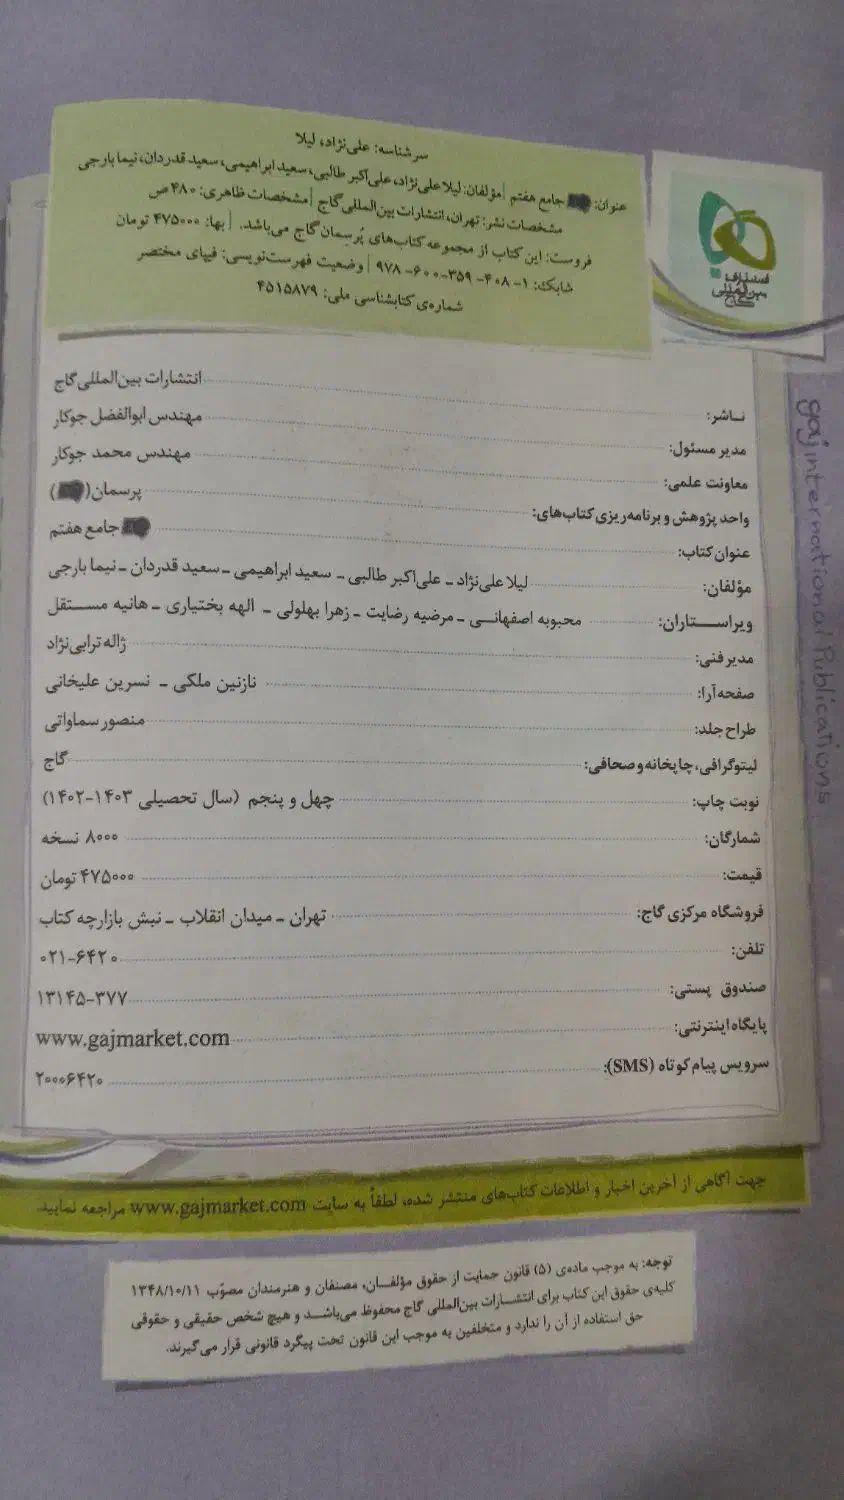 سرشناسه: علی‌نژاد، لیلا
عنوان: جامع هفتم | مؤلفان: لیلا علی‌نژاد، علی‌اکبر طالبی، سعید ابراهیمی، سعید قدردان، نیما بارجی
مشخصات نشر: تهران، انتشارات بین‌المللی گاج | مشخصات ظاهری: ۴۸۰ ص
فروست: این کتاب از مجموعه کتاب‌های پُرسِمان گاج می‌باشد. | بها: ۴۷۵۰۰۰ تومان
شابک: ۱-۴۰۸-۳۵۹-۶۰۰-۹۷۸ | وضعیت فهرست‌نویسی: فیپای مختصر
شماره‌ی کتابشناسی ملی: ۴۵۱۵۸۷۹
انتشارات
بین‌المللی
گاج
gaj international Publications
ناشر: انتشارات بین‌المللی گاج
مدیر مسئول: مهندس ابوالفضل جوکار
معاونت علمی: مهندس محمد جوکار
واحد پژوهش و برنامه‌ریزی کتاب‌های: پرسمان ()
عنوان کتاب: جامع هفتم
مؤلفان: لیلا علی‌نژاد ـ علی‌اکبر طالبی ـ سعید ابراهیمی ـ سعید قدردان ـ نیما بارجی
ویراستاران: محبوبه اصفهانی ـ مرضیه رضایت ـ زهرا بهلولی ـ الهه بختیاری ـ هانیه مستقل
مدیر فنی: ژاله ترابی‌نژاد
صفحه‌آرا: نازنین ملکی ـ نسرین علیخانی
طراح جلد: منصور سماواتی
لیتوگرافی، چاپخانه و صحافی: گاج
نوبت چاپ: چهل و پنجم (سال تحصیلی ۱۴۰۳-۱۴۰۲)
شمارگان: ۸۰۰۰ نسخه
قیمت: ۴۷۵۰۰۰ تومان
فروشگاه مرکزی گاج: تهران ـ میدان انقلاب ـ نبش بازارچه کتاب
تلفن: ۰۲۱-۶۴۲۰
صندوق پستی: ۱۳۱۴۵-۳۷۷
پایگاه اینترنتی: www.gajmarket.com
سرویس پیام کوتاه (SMS): ۲۰۰۰۶۴۲۰
جهت آگاهی از آخرین اخبار و اطلاعات کتاب‌های منتشر شده، لطفاً به سایت www.gajmarket.com مراجعه نمایید.
توجه: به موجب ماده‌ی (۵) قانون حمایت از حقوق مؤلفان، مصنفان و هنرمندان مصوّب ۱۳۴۸/۱۰/۱۱
کلیه‌ی حقوق این کتاب برای انتشارات بین‌المللی گاج محفوظ می‌باشد و هیچ شخص حقیقی و حقوقی
حق استفاده از آن را ندارد و متخلفین به موجب این قانون تحت پیگرد قانونی قرار می‌گیرند.